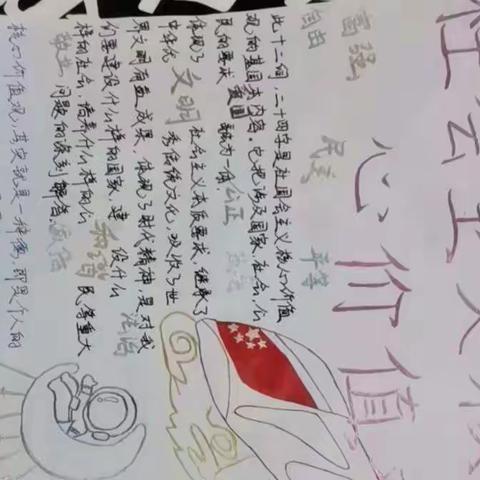 社会主义核
心价值
富强
自由 民主 平等
此十二个,二十四字是社会主义核心价值
观的基本内容。它把涉及国家、社会、公
民的要求 爱国 融为一体, 公正
体现了 文明 社会主义本质要求,继承了
中华优秀传统文化,吸收了世
界文明有益成果,体现了时代精神,是对我
们要建设什么样的国家、建设什么 法治
样的社会、培育什么样的公 和谐 民等重大
敬业 问题的深刻解答 诚信
核心价值观,其实就是一种德,即是个人的